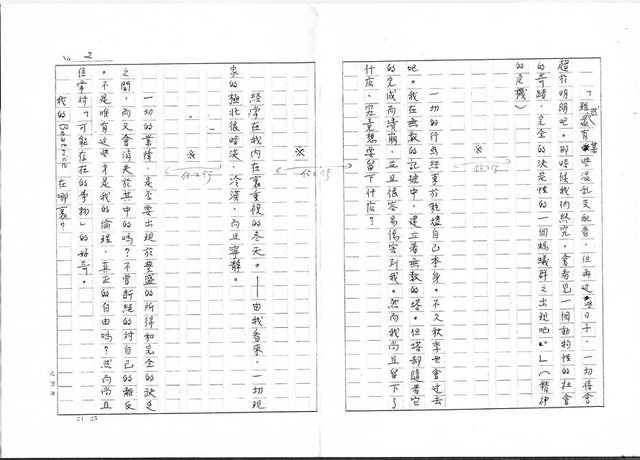 「雖然還有某些混亂支配着，但再過些日子，一切將會
趨於明朗吧。那時候我們終究，會看見一個動物性的社會
的奇蹟，完全的決定性的一個螞蟻群之出現吧。」（精神
的危機）
※
一切的行為結束於乾燥自己本身。不久秋季也會過去
吧。我在無數的記號中，建立著無數的塔。但塔卻隨著它
的完成而潰崩，並且很容易傷害到我。然而我尚且留下了
什麼，究竟想要留下什麼？
※
No 2
經常在我內在裏重複的冬天。——由我看來，一切現
象的極北很暗淡、冷漠，而且寧靜。
※
一切的業障，是不要出現於豐盛的所得和完全的缺乏
之間，而又會消失於其中的嗎？不管斷絕的對自己的離反
，不是唯有這些才是我的倫理，真正的自由嗎？然而尚且
經常對「可能存在的事物」的好奇。
我的Beatrice在哪裏？